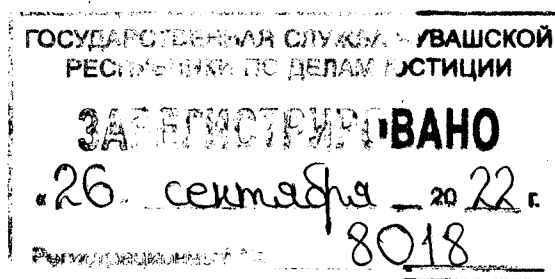 ГОСУДАРСТВЕННАЯ СЛУЖБА ЧУВАШСКОЙ
РЕСПУБЛИКИ ПО ДЕЛАМ ЮСТИЦИИ
ЗАРЕГИСТРИРОВАНО
«26 сентября 2022 г.
Регистрационный № 8018